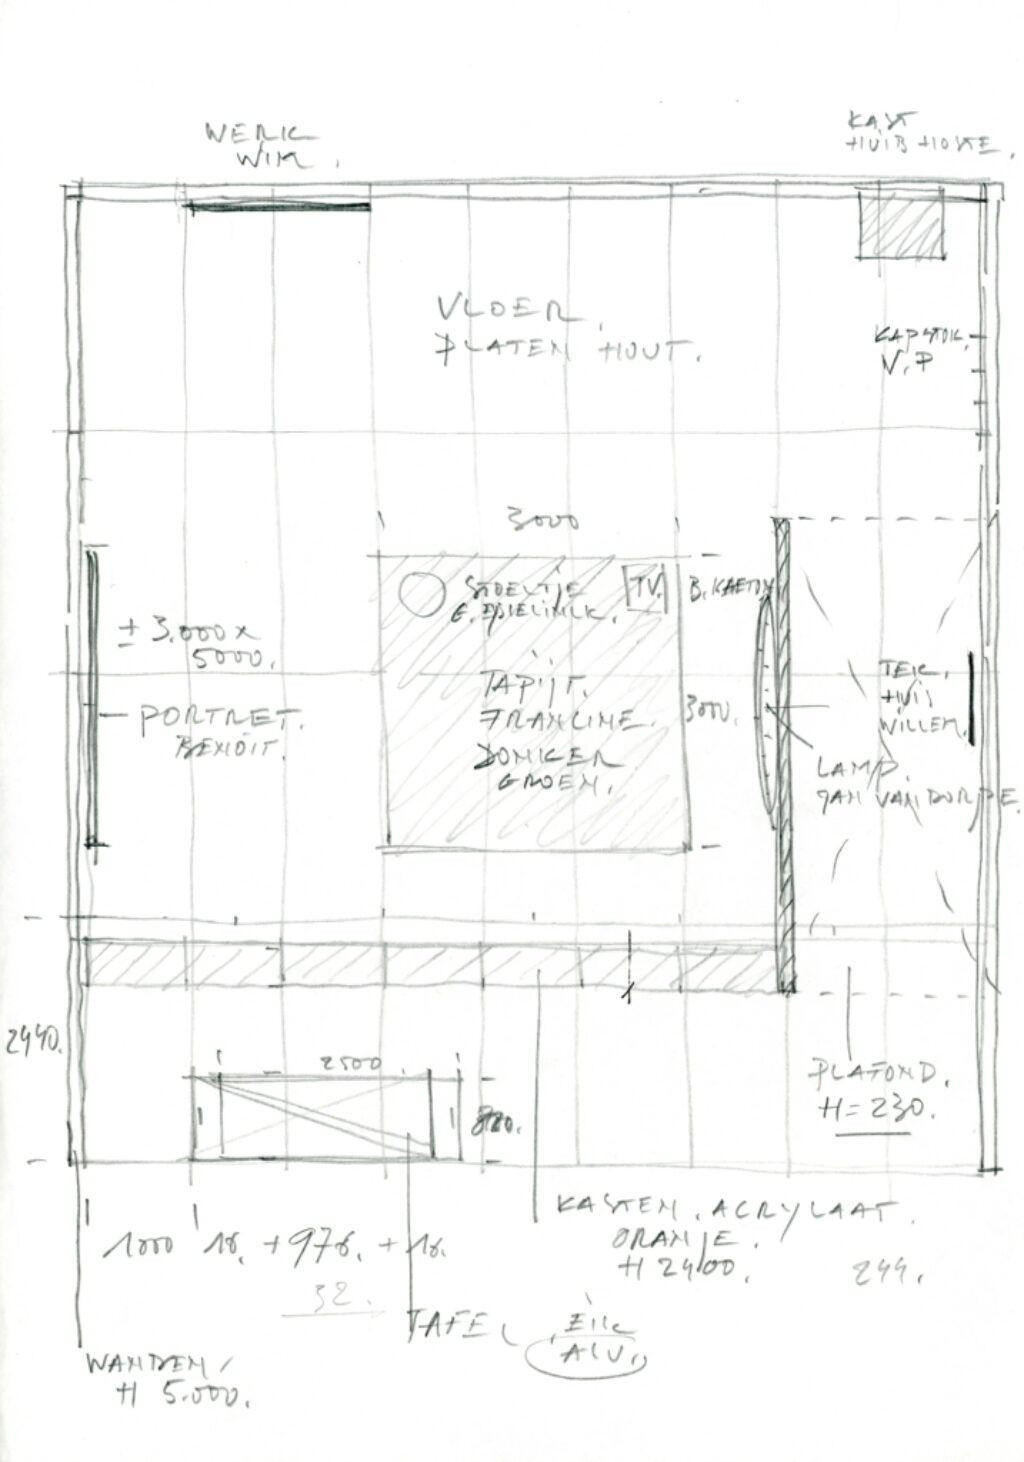 WERK
WIM.
KAST
HUIB HOSTE.
VLOER.
PLATEN HOUT.
KAPSTOK.
V.P
3000
STOELTJE
TV.
± 3.000 x
5000.
PORTRET.
BENOIT.
TAPIJT.
FRANCINE.
DONKER
GROEN.
3000.
TEK.
HUIS
WILLEM.
LAMP.
JAN VAN DORPE
2440.
2500
PLAFOND.
H=230.
KASTEN. ACRYLAAT.
ORANJE.
H 2400.
244.
1000 18. + 976. + 18.
32.
TAFEL
EIK
ALU.
WANDEN/
H 5.000.